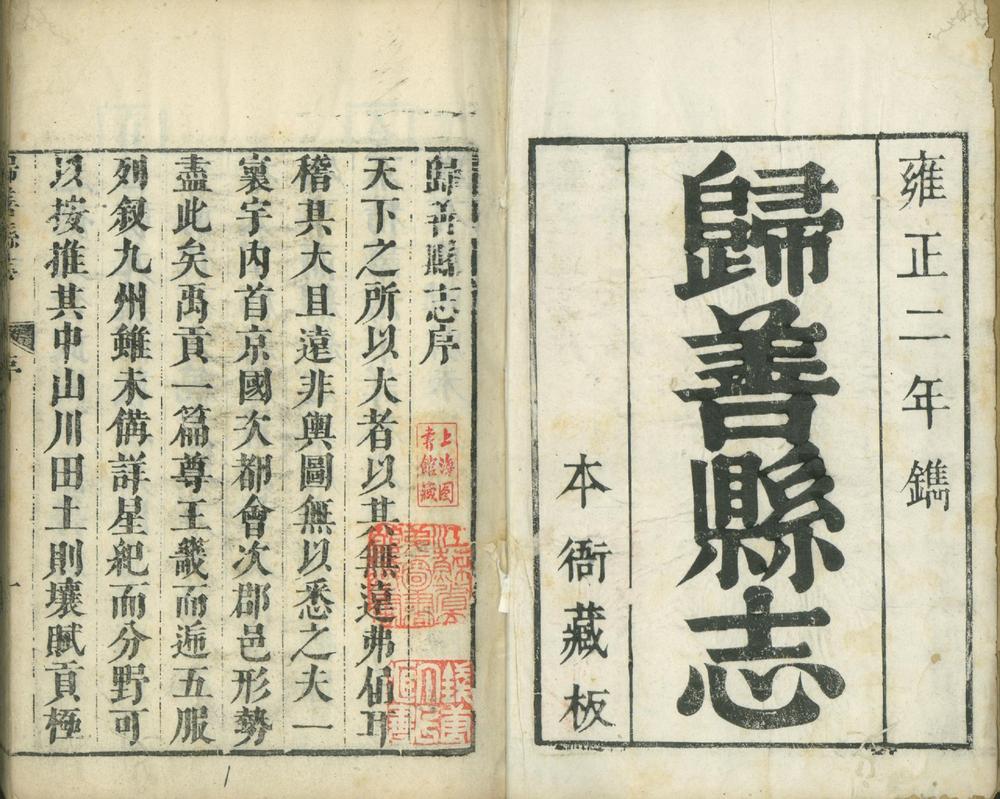 雍正二年鐫
歸善縣志
本衙藏板
歸善縣志序
天下之所以大者以其無遠弗佰耳
稽其大且遠非輿圖無以悉之夫一
寰宇內首京國次都會次郡邑形勢
盡此矣禹貢一篇尊王畿而逓五服
列叙九州雖未備詳星紀而分野可
以按推其中山川田土則壤賦貢極
歸善縣志
序
一
上海图
書館藏